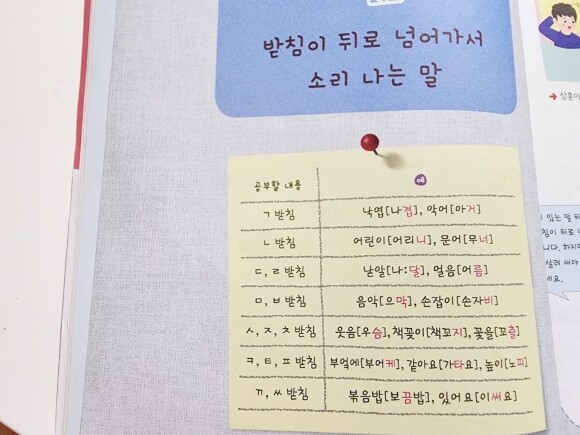 받침이 뒤로 넘어가서
소리 나는 말
공부할 내용 예
ㄱ 받침 낙엽[나겹], 악어[아거]
ㄴ 받침 어린이[어리니], 문어[무너]
ㄷ, ㄹ 받침 낟알[나:달], 얼음[어름]
ㅁ, ㅂ 받침 음악[으막], 손잡이[손자비]
ㅅ, ㅈ, ㅊ 받침 웃음[우슴], 책꽂이[책꼬지], 꽃을[꼬츨]
ㅋ, ㅌ, ㅍ 받침 부엌에[부어케], 같아요[가타요], 높이[노피]
ㄲ, ㅆ 받침 볶음밥[보끔밥], 있어요[이써요]
➔ 상훈이
있는 말 뒤
침이 뒤로 나
니다. 하지만
살려 써야
세요.